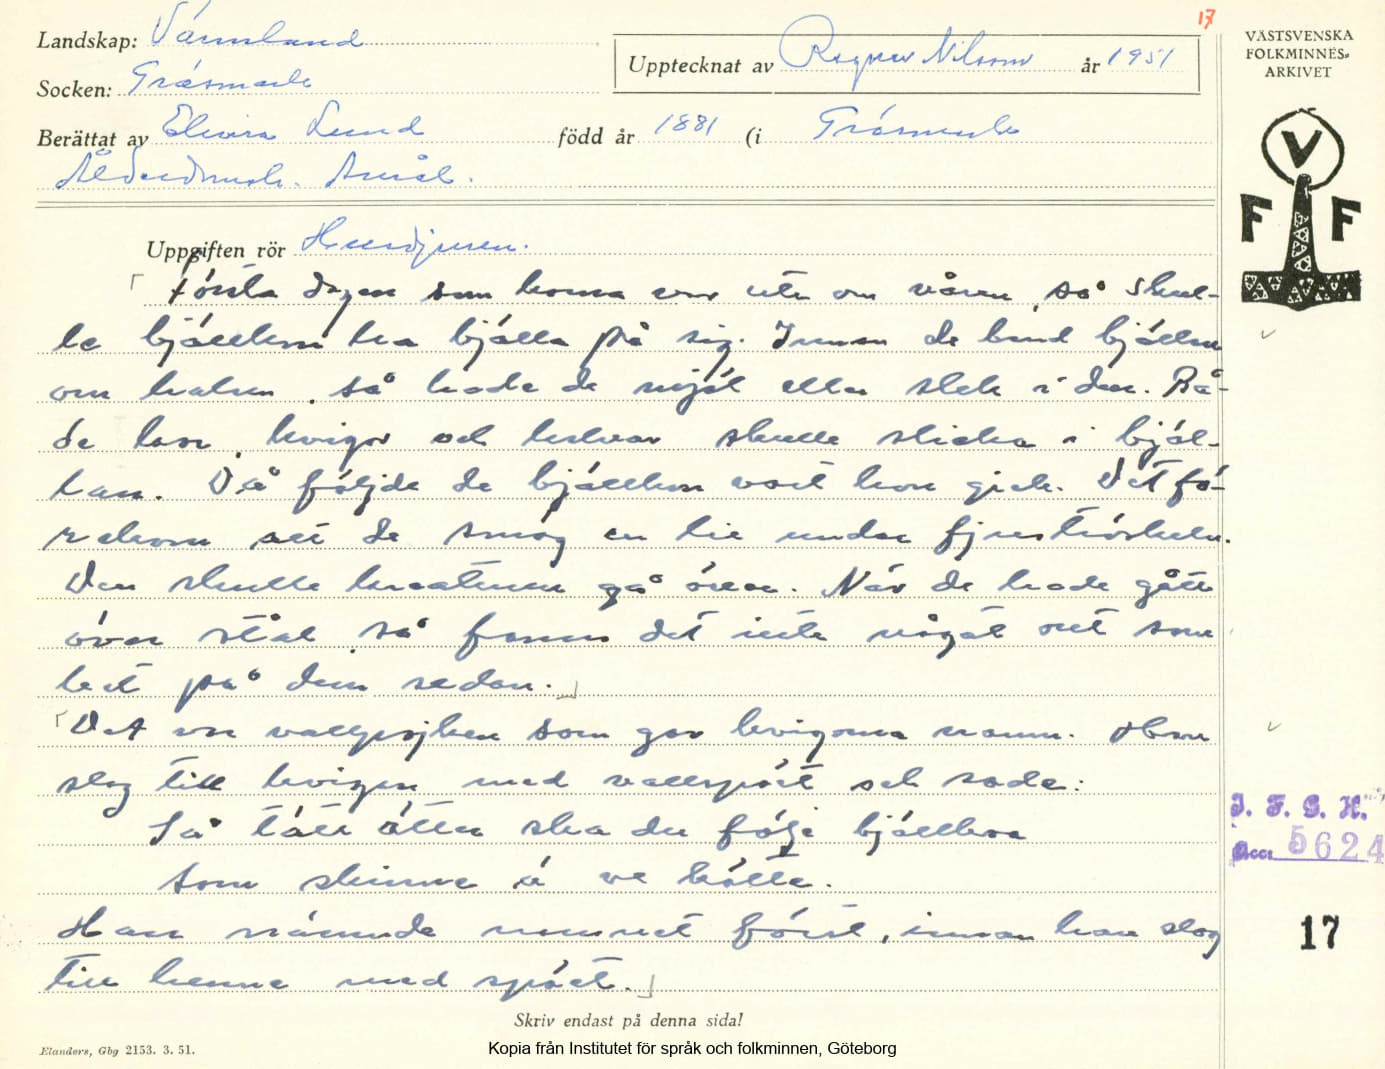 17
Landskap: Värmland
Upptecknat av Ragnar Nilsson år 1951
Socken: Gräsmark
Berättat av Elvira Lund född år 1881 (i Gräsmark
Ålderdomsh. Åmål.
VÄSTSVENSKA
FOLKMINNES-
ARKIVET
V
F F
Uppgiften rör Husdjuren.
Första dagen som korna var ute om våren, så skul-
le bjällkon ha bjälla på sig. Innan de band bjällan
om halsen, så hade de mjöl eller slek i den. Bå-
de kor, kvigor och kalvar skulle slicka i bjäl-
lan. Då följde de bjällkon vart hon gick. Det fö-
rekom att de smög en lie under fjöströskeln.
Den skulle kreaturen gå över. När de hade gått
över stål så fanns det inte något ont som
bet på dem sedan.
Det var vallpojken som gav kvigorna namn. Han
slog till kvigan med vallspöet och sade:
Så tätt ätter ska du följe bjällkoa
som skinne ä ve kötte.
Han nämnde namnet först, innan han slog
till henne med spöet.
I. F. G. H.
Acc: 5624
17
Skriv endast på denna sida!
Elanders, Gbg 2153. 3. 51.
Kopia från Institutet för språk och folkminnen, Göteborg